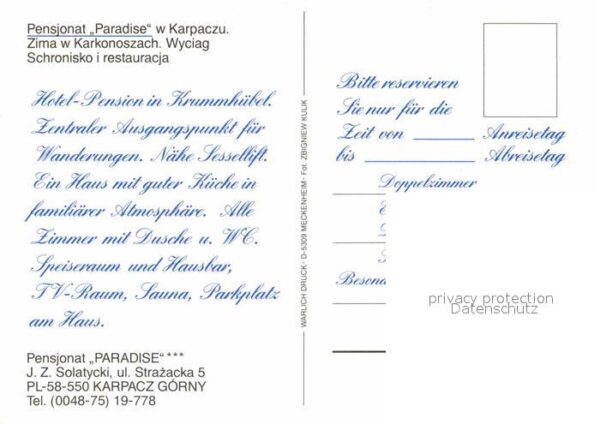 Pensjonat „Paradise“ w Karpaczu.
Zima w Karkonoszach. Wyciag
Schronisko i restauracja
Hotel-Pension in Krummhübel.
Zentraler Ausgangspunkt für
Wanderungen. Nähe Sessellift.
Ein Haus mit guter Küche in
familiärer Atmosphäre. Alle
Zimmer mit Dusche u. WC.
Speiseraum und Hausbar,
TV-Raum, Sauna, Parkplatz
am Haus.
Pensjonat „PARADISE“***
J. Z. Solatycki, ul. Strażacka 5
PL-58-550 KARPACZ GÓRNY
Tel. (0048-75) 19-778
WARLICH DRUCK · D-5309 MECKENHEIM · Fot. ZBIGNIEW KULIK
Bitte reservieren
Sie nur für die
Zeit von ________ Anreisetag
bis ____________ Abreisetag
Doppelzimmer
E
Besond
privacy protection
Datenschutz